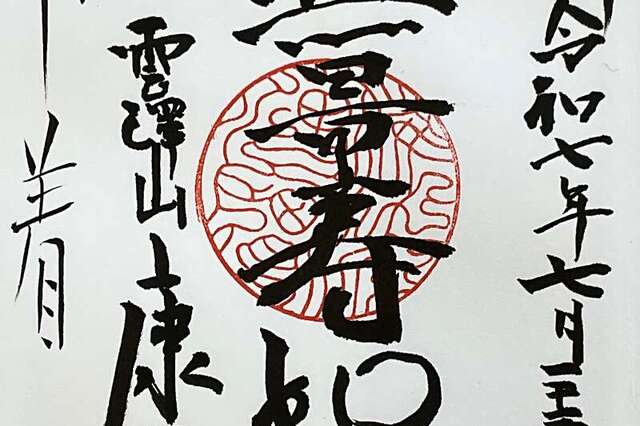 令和七年七月二十
無量寿如
雲澤山康